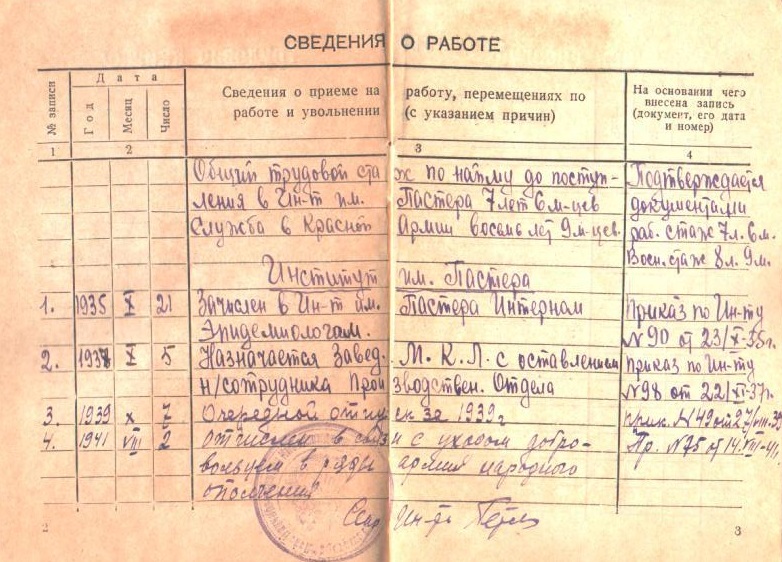 СВЕДЕНИЯ О РАБОТЕ
№ записи
Дата
Год
Месяц
Число
Сведения о приеме на работу, перемещениях по
работе и увольнении (с указанием причин)
На основании чего
внесена запись
(документ, его дата
и номер)
1 2 3 4
Общий трудовой стаж по найму до поступ-
ления в Ин-т им. Пастера 7 лет 6 м-цев
Служба в Красной Армии восемь лет 9 м-цев.
Подтверждается
документами
раб. стаж 7 л. 6 м.
Воен. стаж 8 л. 9 м.
Институт им. Пастера
1. 1935 X 21 Зачислен в Ин-т им. Пастера Интерном
Эпидемиологом.
Приказ по Ин-ту
№90 от 23/X-35 г.
2. 1937 X 5 Назначается Завед. М.К.Л. с оставлением
н/сотрудника Производствен. Отдела
Приказ по Ин-ту
№98 от 22/XI-37 г.
3. 1939 X 7 Очередной отпуск за 1939 г
прик. №49 от 27/VIII-39
4. 1941 VIII 2 отчислен в связи с уходом добро-
вольцем в ряды армии народного
ополчения
Пр. №75 от 14.VIII-41
Ин-та
2
3